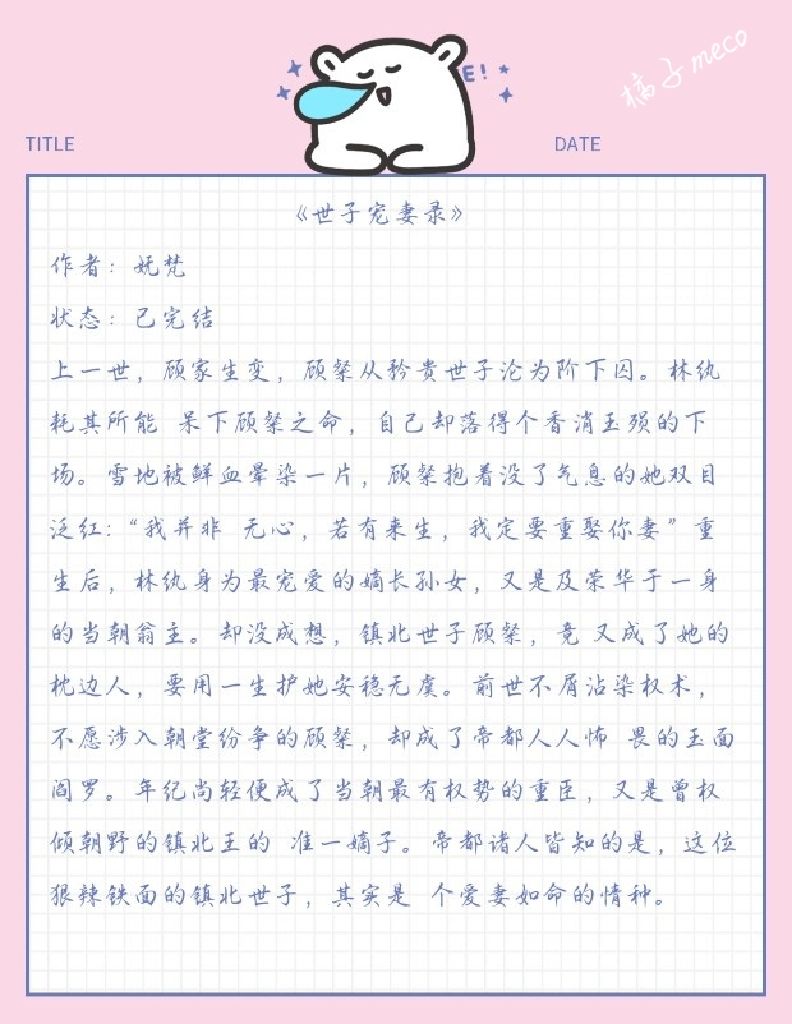 E!
橘子meco
TITLE
DATE
《世子宠妻录》
作者：妩梵
状态：已完结
上一世，顾家生变，顾粲从矜贵世子沦为阶下囚。林纨
耗其所能 呆下顾粲之命，自己却落得个香消玉殒的下
场。雪地被鲜血晕染一片，顾粲抱着没了气息的她双目
泛红：“我并非 无心，若有来生，我定要重娶你妻”重
生后，林纨身为最宠爱的嫡长孙女，又是及荣华于一身
的当朝翁主。却没成想，镇北世子顾粲，竟 又成了她的
枕边人，要用一生护她安稳无虞。前世不屑沾染权术，
不愿涉入朝堂纷争的顾粲，却成了帝都人人怖 畏的玉面
阎罗。年纪尚轻便成了当朝最有权势的重臣，又是曾权
倾朝野的镇北王的 准一嫡子。帝都诸人皆知的是，这位
狠辣铁面的镇北世子，其实是 个爱妻如命的情种。